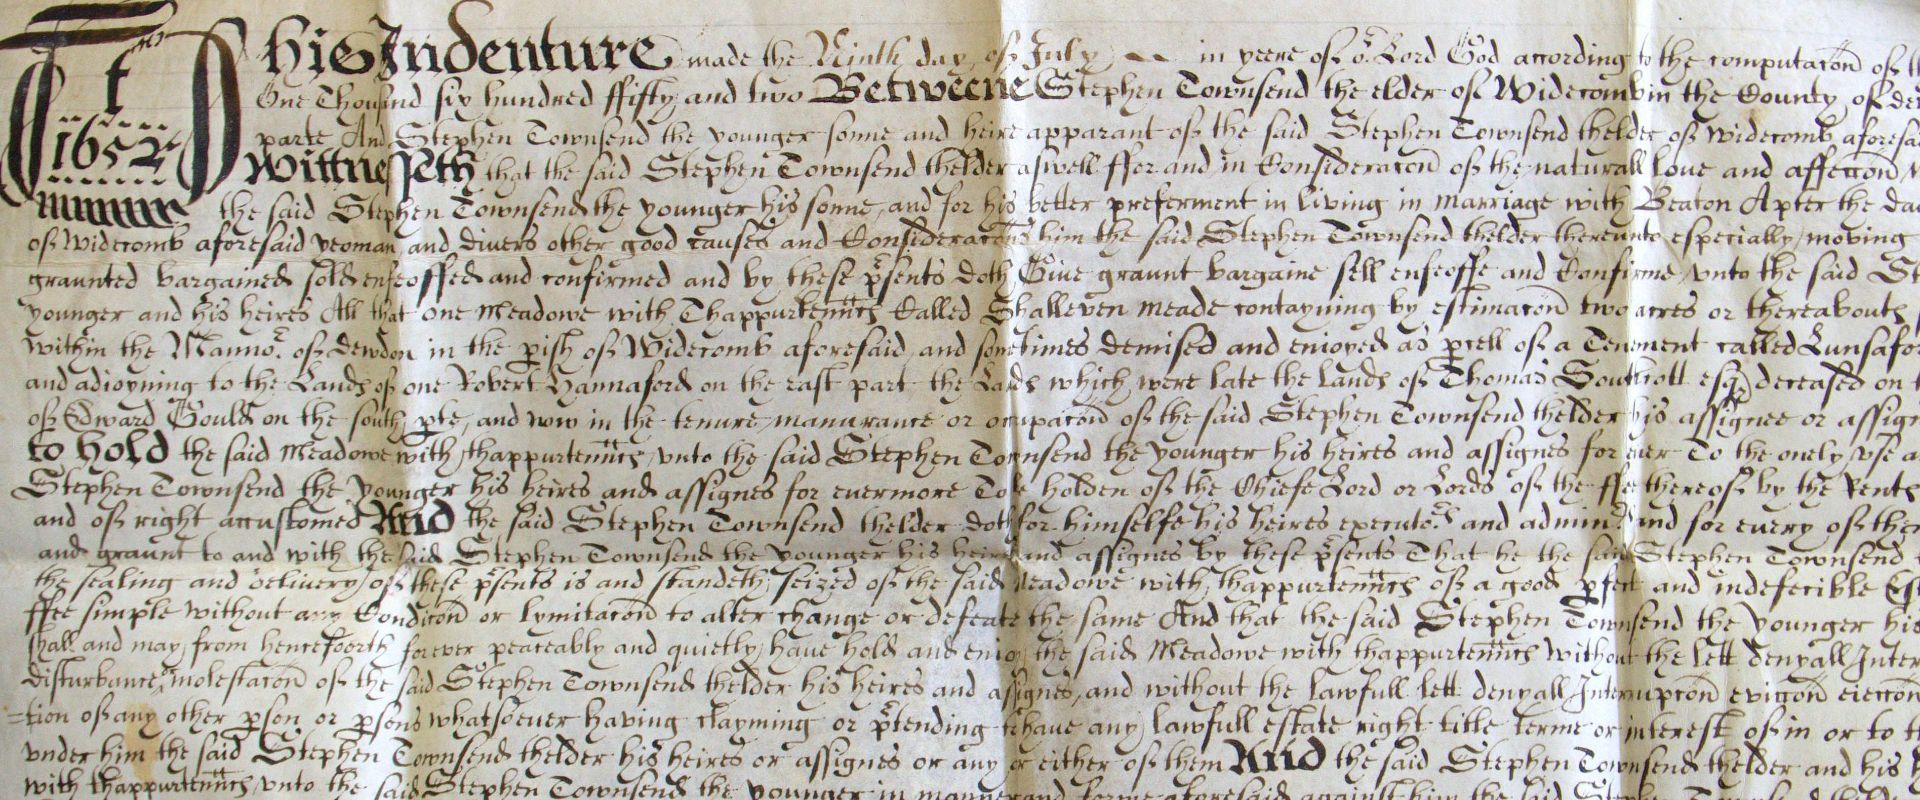 This Indenture made the Ninth day of July in yeere of or Lord God according to the computacōn of
1652
One Thousand six hundred ffifty and two Betweene Stephen Townsend the elder of Widecomb in the County of
parte And Stephen Townsend the younger sonne and heire apparant of the said Stephen Townsend thelder of Widecomb aforesa
Wittnesseth that the said Stephen Townsend thelder aswell ffor and in Consideracōn of the naturall love and affeccōn
the said Stephen Townsend the younger his sonne, and for his better preferment in living in marriage with Beaton Apter the da
of Widecomb aforesaid yeoman and divers other good causes and Consideracōns him the said Stephen Townsend thelder thereunto especially moving
graunted bargained sold enfeoffed and confirmed and by these p̄sents doth Give graunt bargaine sell enfeoffe and Confirme vnto the said St
younger and his heires All that one Meadowe with Thappurtenncs Called Shalleven meade contayning by estimacōn two acres or thereabouts
within the Mannor of dewdon in the pish of Widecomb aforesaid, and sometimes demised and enioyed as pcell of a Tenement called Lunsafo
and adioyning to the Lands of one Robert Hannaford on the east part the Lands which were late the lands of Thomas Southcott esqr deceased on
of Edward Gould on the south pte, and now in the tenure manurance or occupacōn of the said Stephen Townsend thelder his assignee or assign
to hold the said Meadowe with thappurtenncs vnto the said Stephen Townsend the younger his heires and assignes for ever To the onely vse a
Stephen Townsend the younger his heires and assignes for evermore To be holden of the Chiefe Lord or Lords of the ffee thereof by the Rents
and of right accustomed And the said Stephen Townsend thelder doth for himselfe his heires executors and admin and for every of them
and graunt to and with the said Stephen Townsend the younger his heires and assignes by these p̄sents That he the said Stephen Townsend
the sealing and delivery of these p̄sents is and standeth seized of the said Meadowe with thappurtenncs of a good pfect and indefecible Es
ffee simple without any Condicōn or lymitacōn to alter change or defeate the same And that the said Stephen Townsend the younger his
shall and may from henceforth forever peaceably and quietly have hold and enioy the said Meadowe with thappurtenncs without the lett denyall Inter
disturbance molestacōn of the said Stephen Townsend thelder his heires and assignes, and without the lawfull lett denyall Interrupcōn eviccōn eieccōn
=tion of any other pson or psons whatsoever having clayming or p̄tending to have any lawfull estate right title terme or interest of in or to t
vnder him the said Stephen Townsend thelder his heires or assignes or any or either of them And the said Stephen Townsend thelder and his
with thappurtenncs vnto the said Stephen Townsend the younger in manner and forme aforesaid against him the said